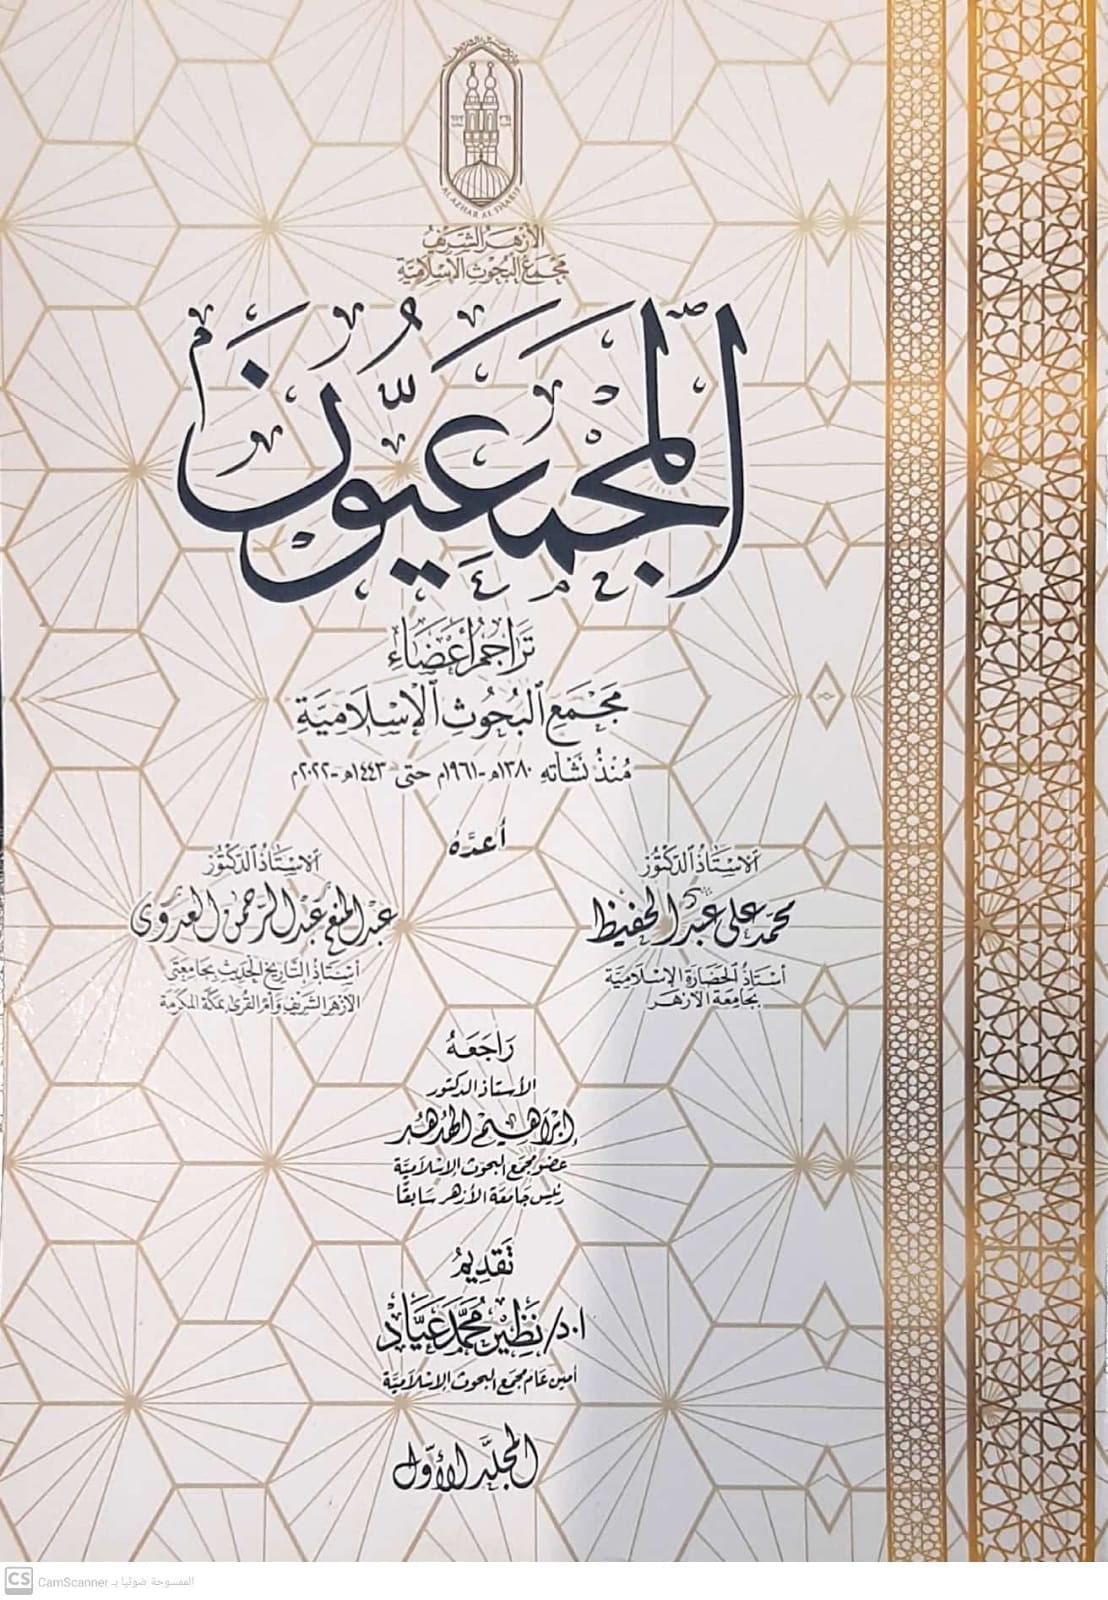 AL AZHAR AL SHARIF
الأزهر الشريف
مجمع البحوث الإسلامية
المجمعيُّون
تراجم أعضاء
مجمع البحوث الإسلامية
منذ نشأته ١٣٨٠هـ-١٩٦١م حتى ١٤٤٣هـ-٢٠٢٢م
أعدَّهُ
الأستاذ الدكتور
محمد علي عبد الحفيظ
أستاذ الحضارة الإسلامية
بجامعة الأزهر
الأستاذ الدكتور
عبد المنعم عبد الرحمن العدوي
أستاذ التاريخ الحديث بجامعتي
الأزهر الشريف وأم القرى بمكة المكرمة
راجعه
الأستاذ الدكتور
إبراهيم الهدهد
عضو مجمع البحوث الإسلامية
رئيس جامعة الأزهر سابقًا
تقديم
ا.د/ نظير محمد عيَّاد
أمين عام مجمع البحوث الإسلامية
المجلد الأول
CS CamScanner الممسوحة ضوئيا بـ